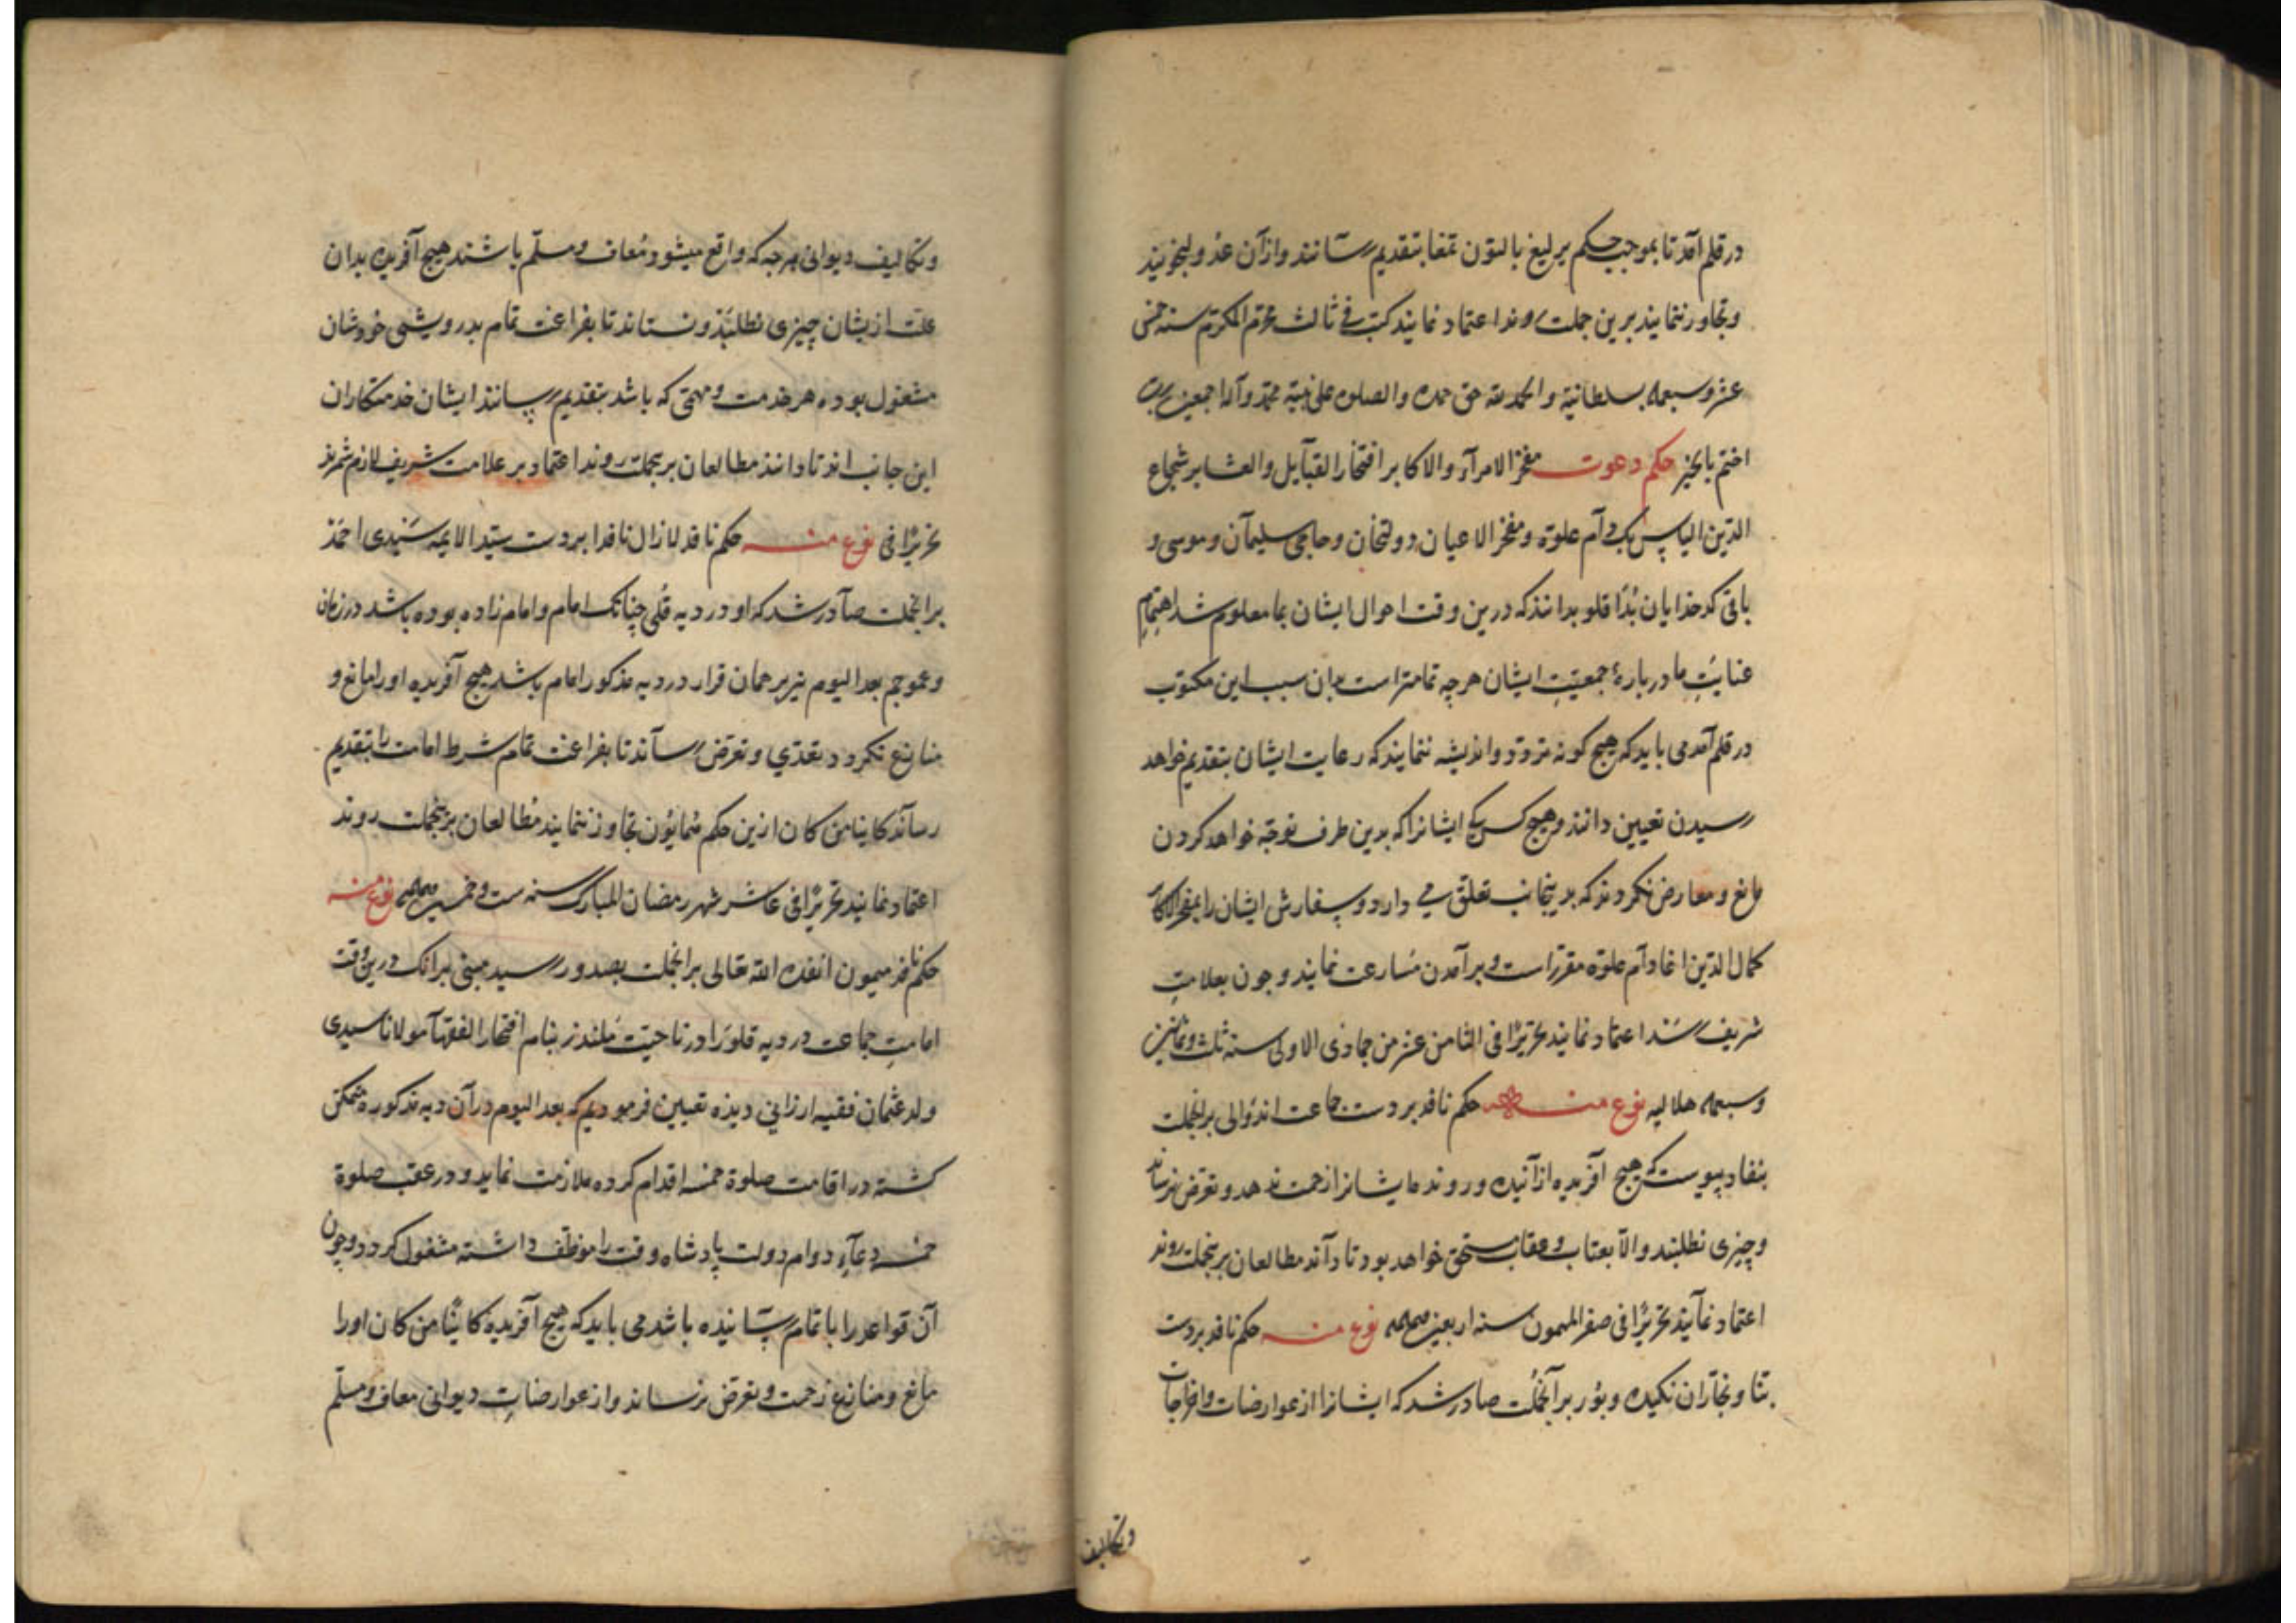 در قلم آمد تا بموجب حکم یرلیغ بالتون تمغا بتقدیم رسانند و ازآن عدول نجویند
و تجاوز ننمایند برین جملت روند اعتماد نمایند کتب فی ثالث محرم المکرم سنه خمس
عشر و سبعمه بسلطانیة و الحمد لله حق حمده و الصلوه علی نبیه محمد و آله اجمعین رب
اختم بالخیر حکم دعوت مفخر الامرآء والاکابر افتخار القبآیل والعشایر شجاع
الدین الیاس بک دآم علوه و مفخر الاعیان دولتخان و حاجی سلیمآن و موسی و
باقی کدخدایان بداقلو بدانند که درین وقت احوال ایشان بما معلوم شد اهتمام
عنایت ما دربارهٔ جمعیت ایشان هرچه تمامتر است بدان سبب این مکتوب
در قلم آمد می باید که هیچ کونه تردد و اندیشه ننمایند که رعایت ایشان بتقدیم خواهد
رسیدن تعیین دانند و هیچ کس ایشانرا که بدین طرف توجه خواهد کردن
مانع و معارض نکردند که بدینجانب تعلق می دارد و سپفارش ایشان را بمفخر الاکابر
کمال الدین اغا دآم علوه مقرر است و برآمدن مسارعت نمایند و چون بعلامت
شریف رسد اعتماد نمایند تحریرًا فی الثامن عشر من جمادی الاولی سنه ثلث و ثمانین
و سبعمه هلالیه نوع منه حکم نافد بردست جماعت اندوالی برانجملت
بنفاد پیوست که هیچ آفریده ازآنیده و رونده مایشانرا زحمت ندهد و تعرض نرساند
و چیزی نطلبند و الآ بعتاب و عقاب مستحق خواهد بود تا دآند مطالعان برینجملت روند
اعتماد نمآیند تحریرًا فی صفر المیمون سنه اربعین نوع منه حکم نافد بردست
بنا و نجاران نکیده و بور برآنجملت صادر شد که ایشانرا از عوارضات و اخراجات
وتکالیف
و تکالیف دیوانی هرچه که واقع میشود معاف و مسلّم باشند هیچ آفریده بدان
علت ازیشان چیزی نطلبند و نستاند تا بفراغت تمام بدرویشی خودشان
مشغول بوده هر خدمت و مهمّی که باشد بتقدیم رسپانند ایشان خدمتکاران
این جانب اند تا دانند مطالعان برینجملت روند اعتماد بر علامت شریف لازم شمرند
تحریرًا فی نوع منه حکم نافد لازال نافدا بردست سیّد الایمه سَیّدی احمد
برانجملت صآدر شد که او در دیه قُلی چنانک امام و امام زاده بوده باشد در زمان
و عموجم بعد الیوم نیز برهمان قرار در دیه مذکور امام باشد هیچ آفریده اورا مانع و
منازع نکردد و تعدّی و تعرّض نرسآند تا بفراغت تمام شرط امامت را بتقدیم
رسآند کاینا من کان ازین حکم همایون تجاوز ننمایند مطالعان برینجملت روند
اعتماد نمایند تحریرًا فی عاشر شهر رمضان المبارک سنه ست و خمسین نوع منه
حکم نافد میمون انفده الله تعالی برانجملت بصدور رسید مبنی برانک درین وقت
امامت جماعت در دیه قلورا در ناحیت ملندز بنام افتخار الفقهآ مولانا سیدی
ولد عثمان فقیه ارزانی دیده تعیین فرمودیم که بعد الیوم درآن دیه مذکوره متمکن
کشته در اقامت صلوة خمسه اقدام کرده ملازمت نماید و در عقب صلوة
خمسه دعآء دوام دولت پادشاه وقت را موظف داشته مشغول کردد و چون
آن قواعد را باتمام رسپانیده باشد می باید که هیچ آفریده کاینًا من کان اورا
مانع و منازع زحمت و تعرض نرساند و از عوارضات دیوانی معاف و مسلّم